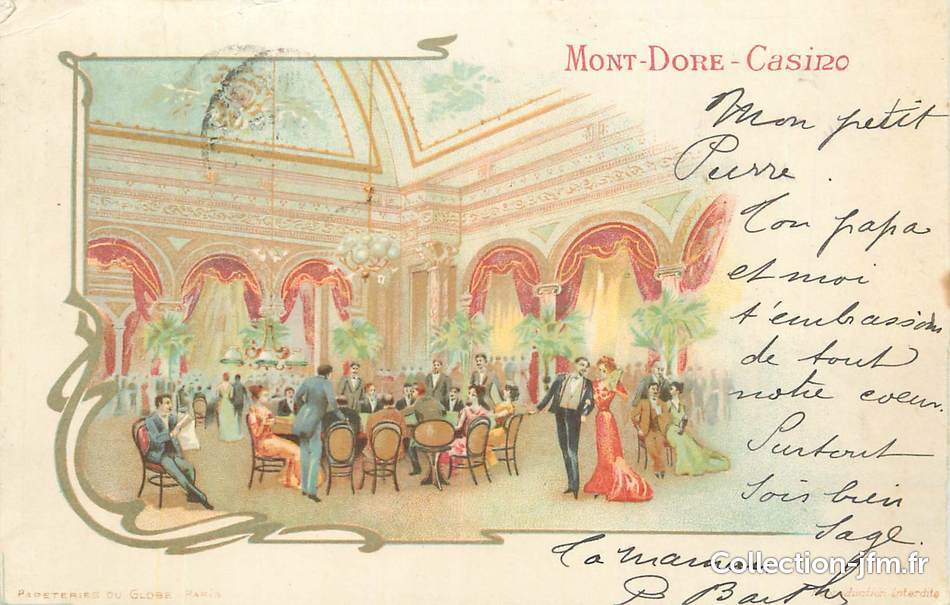 MONT-DORE-CASINO
Mon petit
Pierre.
Ton papa
et moi
t'embrassons
de tout
notre coeur
Surtout
sois bien
sage.
Ta maman
Collection-jfm.fr
PAPETERIES DU GLOBE PARIS
Interdite